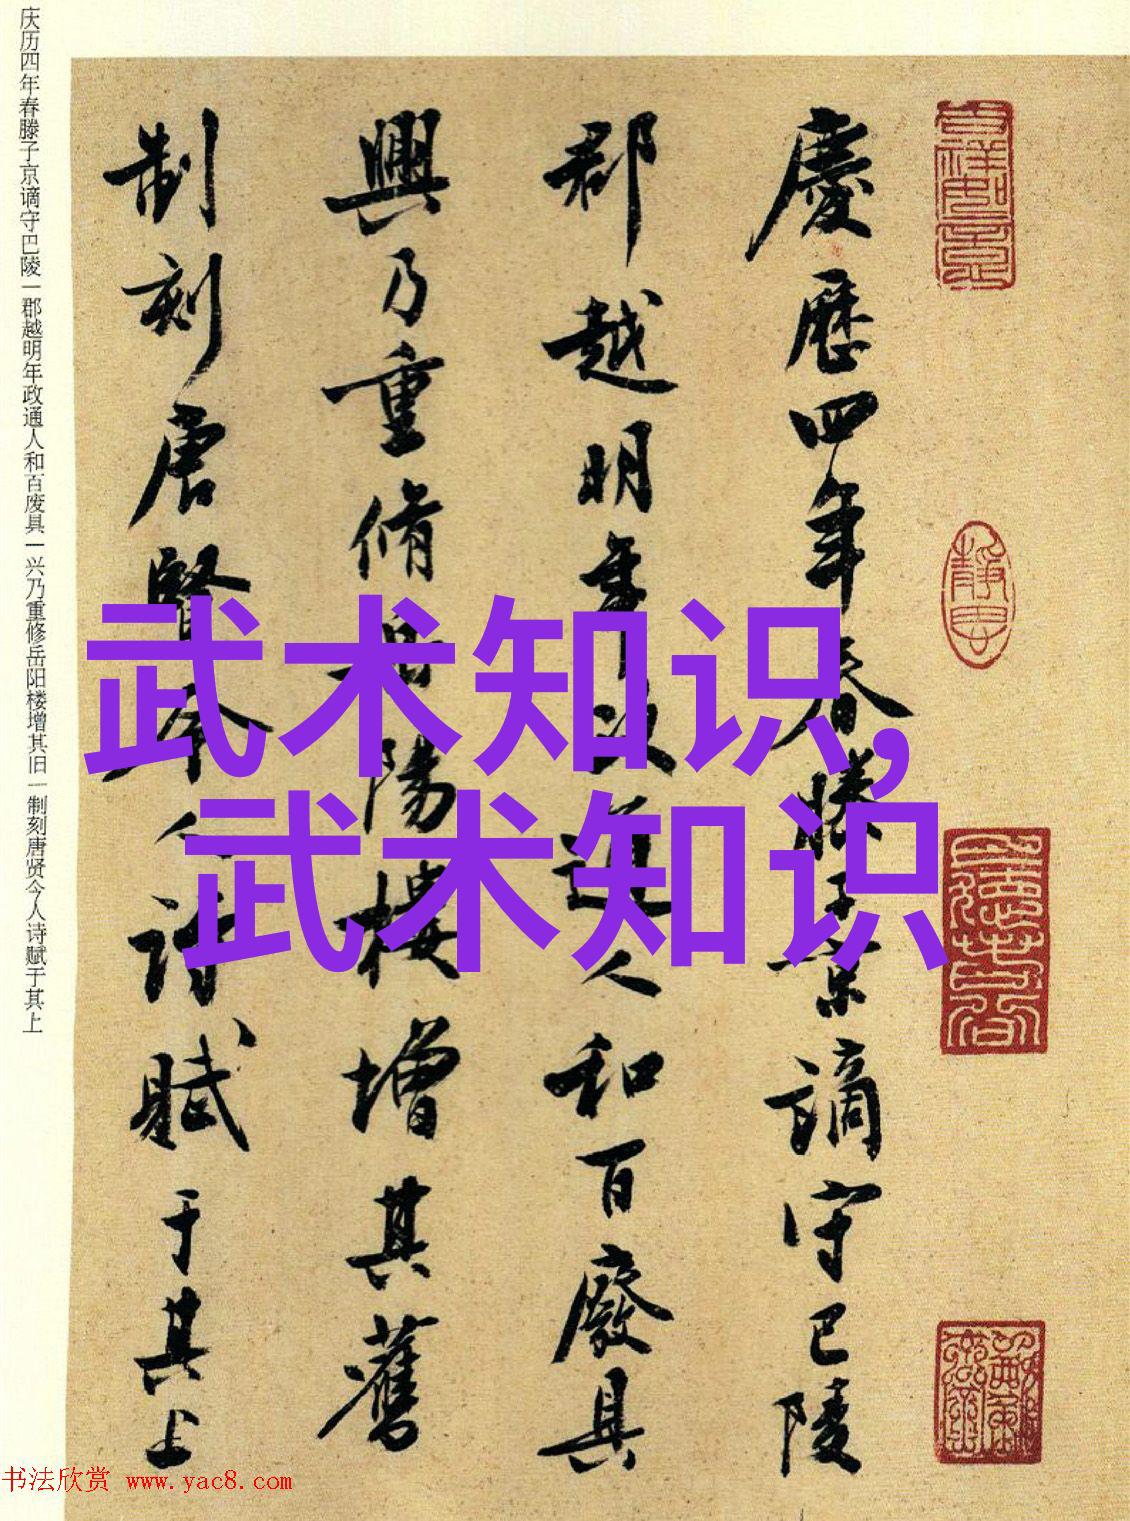 慶歷四年春滕子京謫守巴陵
郡越明年政通人和百廢具
興乃重脩岳陽樓增其舊
制刻唐賢今人詩賦于其上
庆历四年春滕子京谪守巴陵一郡越明年政通人和百废具一兴乃重修岳阳楼增其旧一制刻唐贤今人诗赋于其上
武术知识,
武术知识
书法欣赏 www.yac8.com